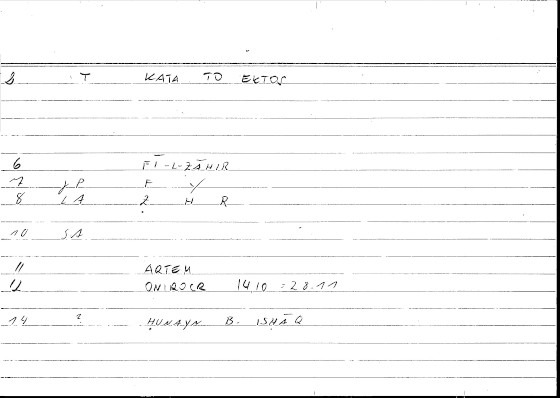 2 T KATA TO EKTOS
6 FĪ-L-ẒĀHIR
7 JP F Y
8 LA Ẓ H R
10 SA
11 ARTEM
12 ONIROCR 1410 = 28.11
14 ? ḤUNAYN B. ISḤĀQ